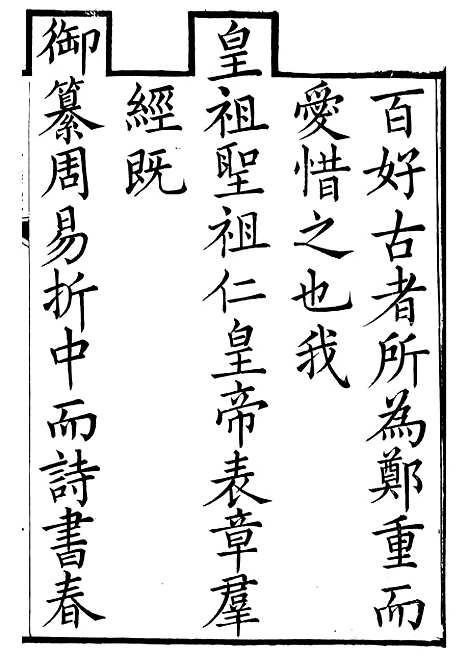 百好古者所為鄭重而
愛惜之也我
皇祖聖祖仁皇帝表章羣
經既
御纂周易折中而詩書春